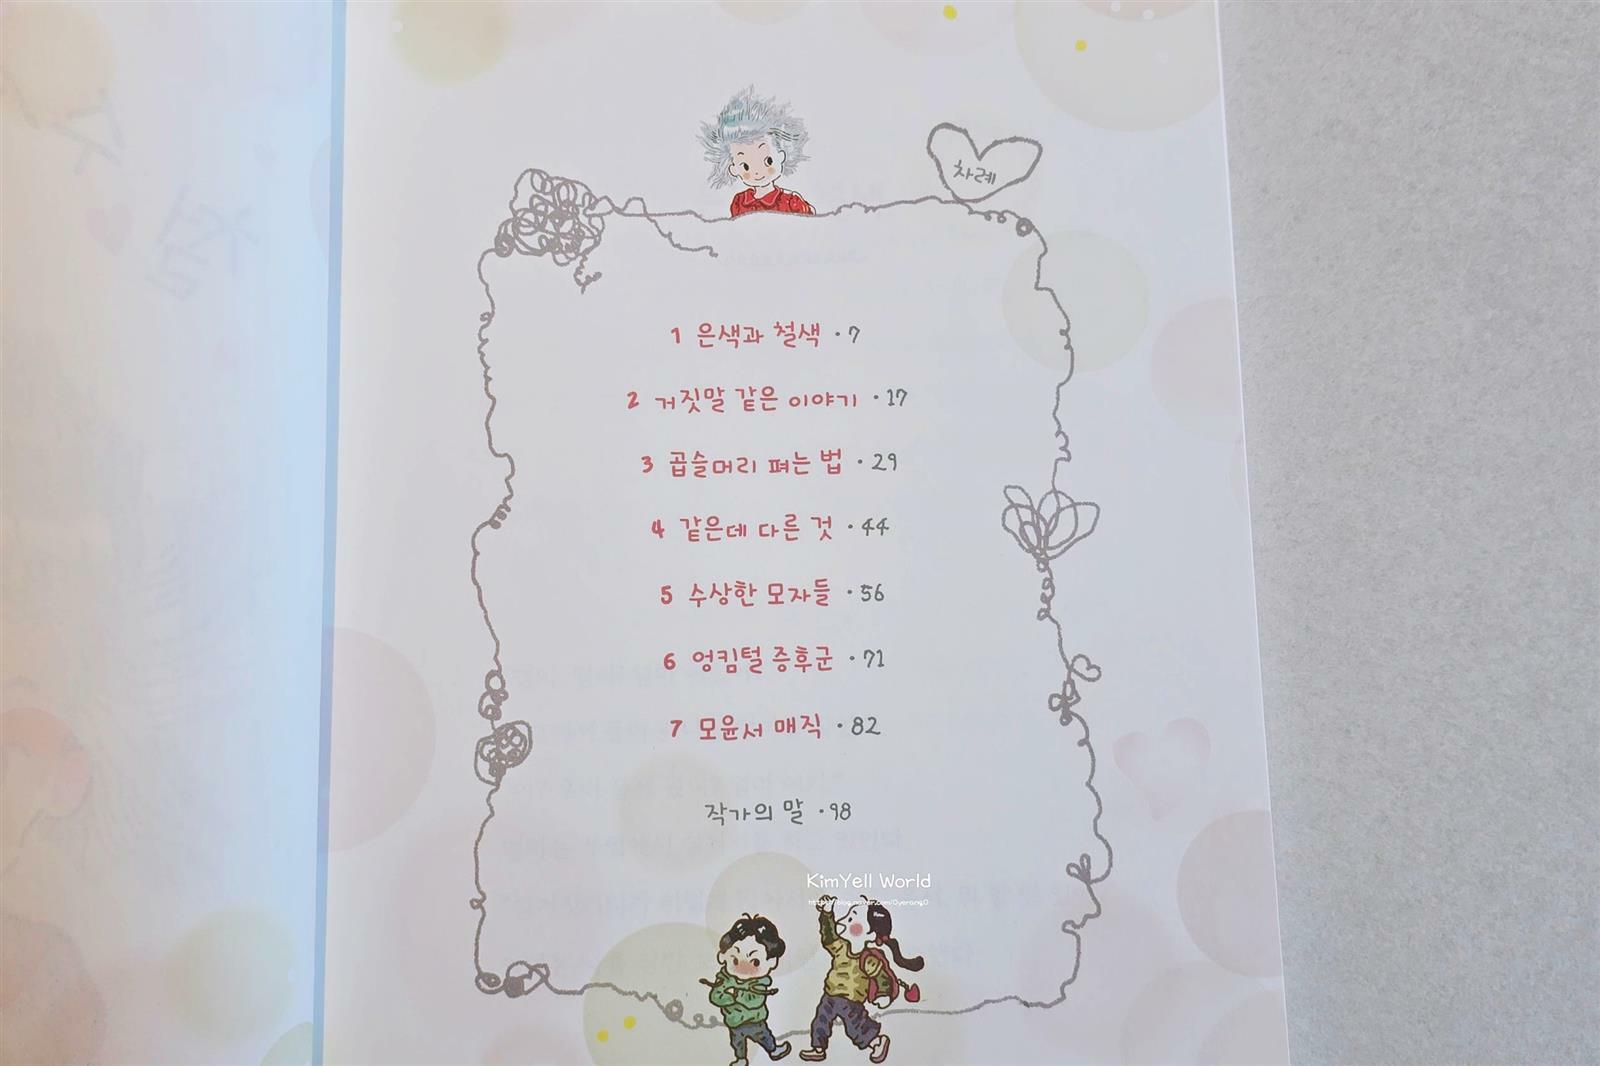 차례
1 은색과 철색 · 7
2 거짓말 같은 이야기 · 17
3 곱슬머리 펴는 법 · 29
4 같은데 다른 것 · 44
5 수상한 모자들 · 56
6 엉킴털 증후군 · 71
7 모윤서 매직 · 82
작가의 말 · 98
KimYell World